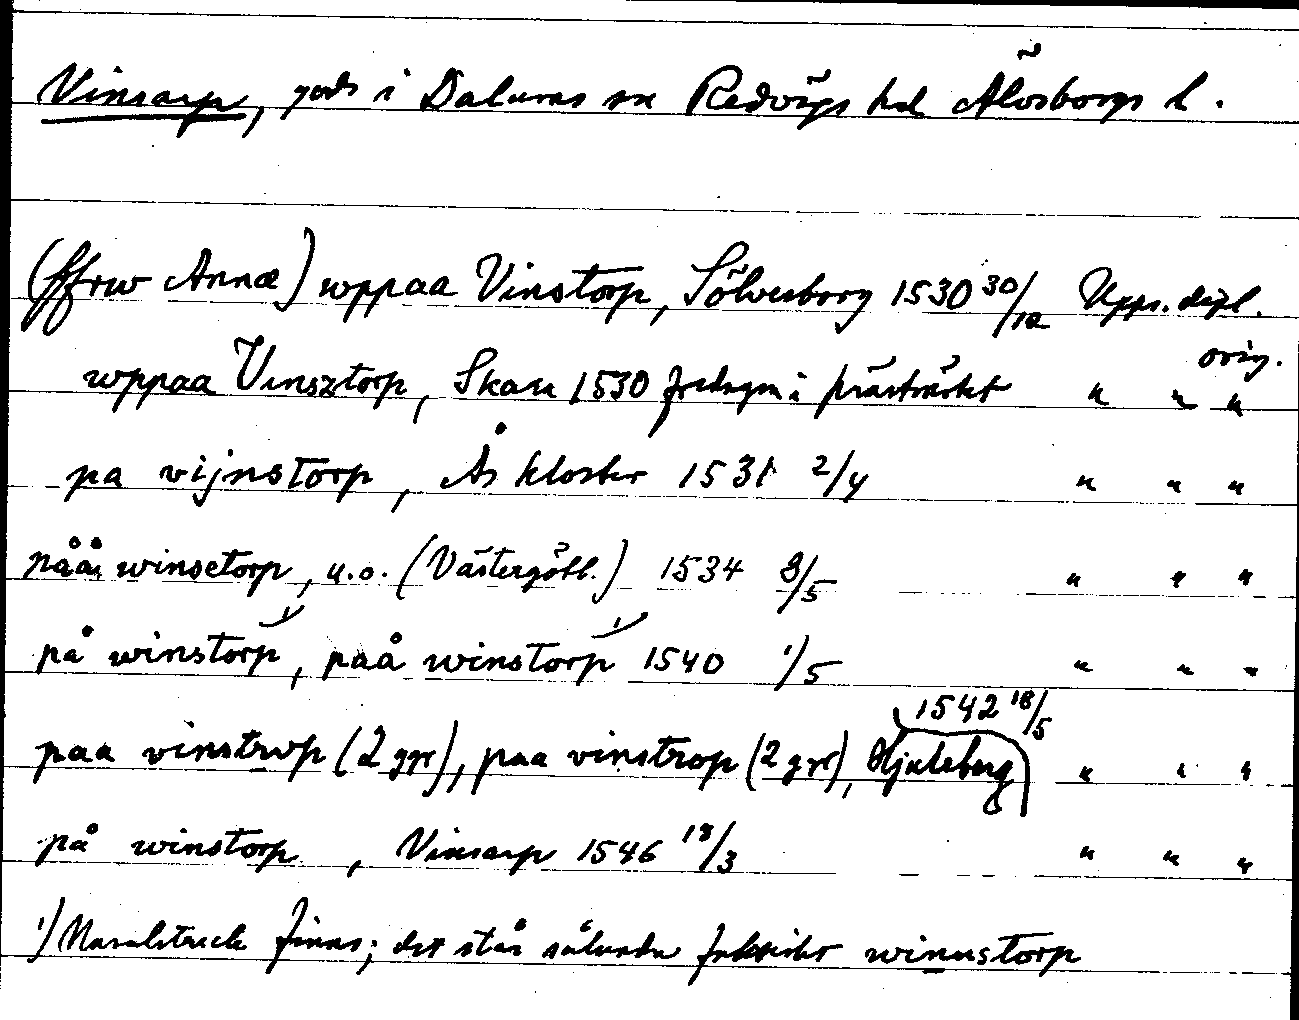 Vinsarp, gods i Dalums sn Redvägs hd Älvsborgs l.
(ffrw Annæ) wppaa Vinstorp, Sölvesborg 1530 30/12 Upps. dipl. orig.
wppaa Vinsztorp, Skara 1530 fredagen i " " "
pa vijnstorp, Ås kloster 1531 2/4 " " "
påå winsetorp, u.o. (Västergötl.) 1534 8/5 " " "
på winstorp 1), paå winstorp 1) 1540 1/5 " " "
paa vinstrvp (2 ggr), paa vinstrop (2 ggr), Hjuleberg 1542 18/5 " " "
på winstorp, Vinsarp 1546 18/3 " " "
1) Nasalstreck finns; det står sålunda faktiskt winnstorp